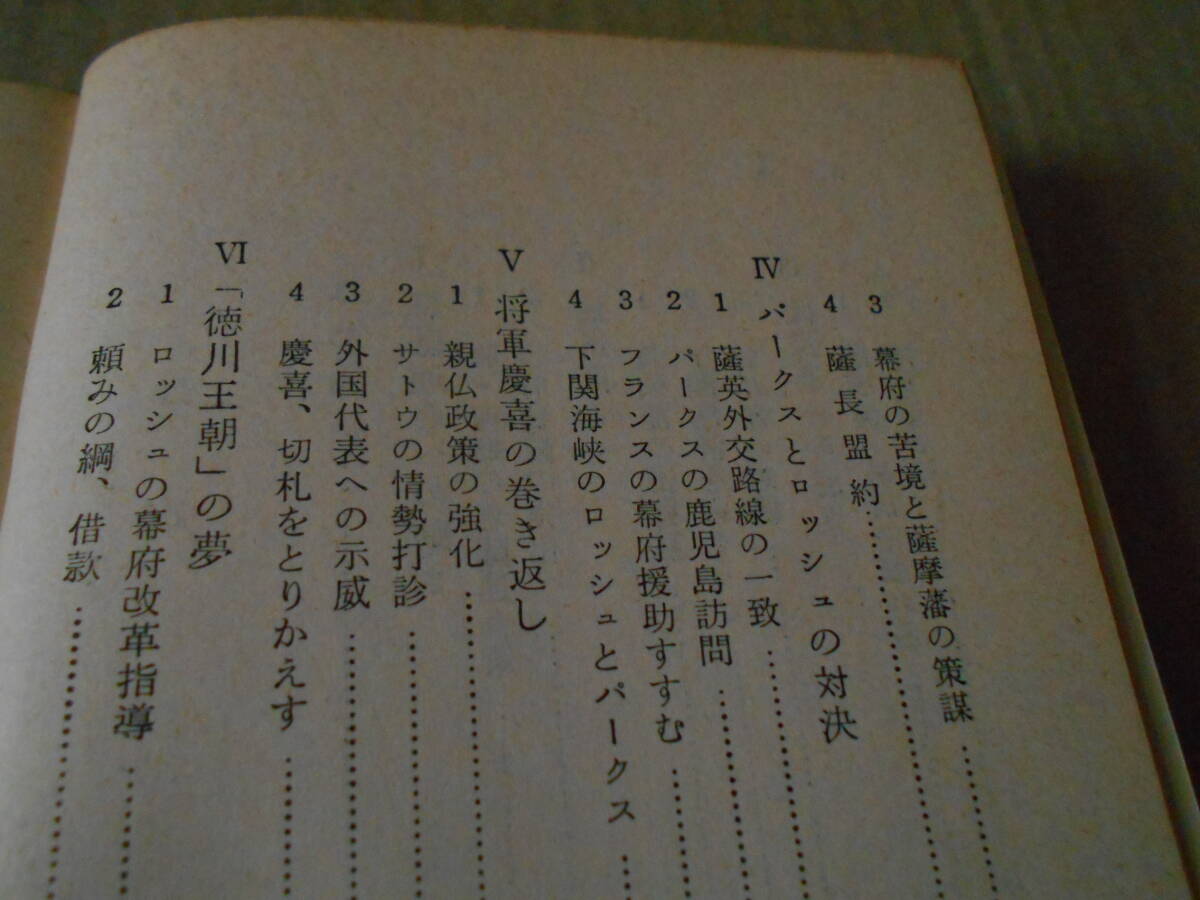 3 幕府の苦境と薩摩藩の策謀
4 薩長盟約
Ⅳ パークスとロッシュの対決
1 薩英外交路線の一致
2 パークスの鹿児島訪問
3 フランスの幕府援助すすむ
4 下関海峡のロッシュとパークス
Ⅴ 将軍慶喜の巻き返し
1 親仏政策の強化
2 サトウの情勢打診
3 外国代表への示威
4 慶喜、切札をとりかえす
Ⅵ 「徳川王朝」の夢
1 ロッシュの幕府改革指導
2 頼みの綱、借款